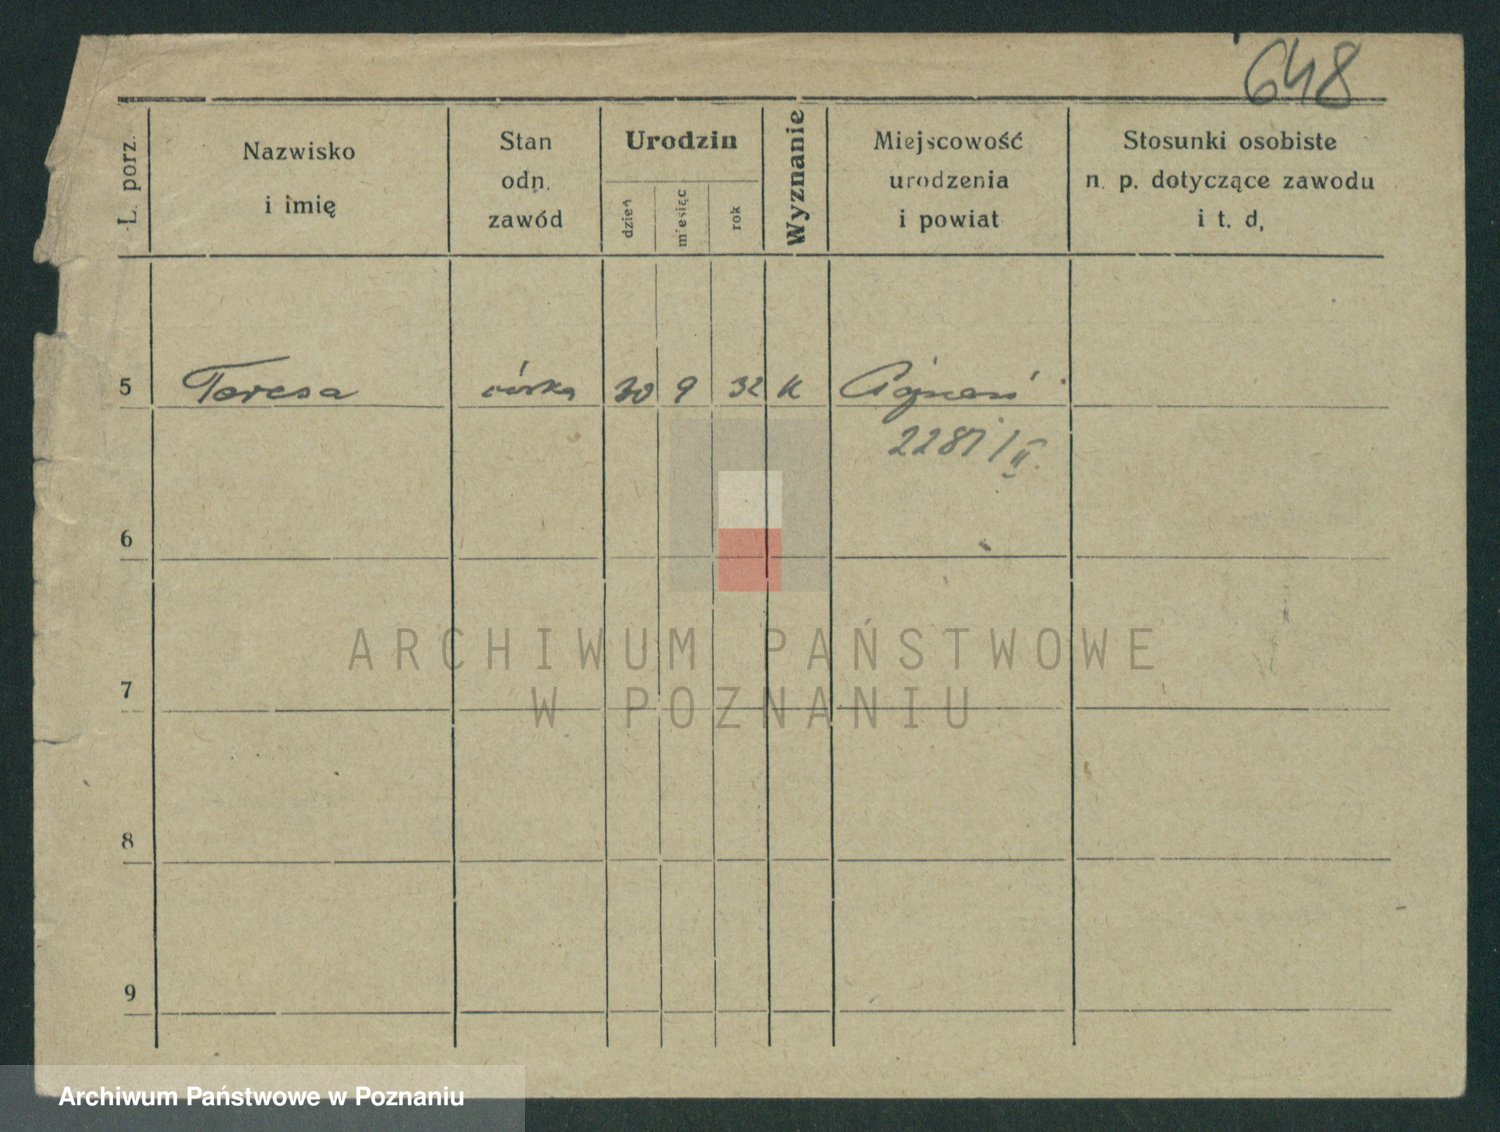 648
L. porz.
Nazwisko
i imię
Stan
odn.
zawód
Urodzin
dzień
miesiąc
rok
Wyznanie
Miejscowość
urodzenia
i powiat
Stosunki osobiste
n. p. dotyczące zawodu
i t. d,
5 Teresa córka 30 9 32 k
2287/II.
6
7
8
9
ARCHIWUM PAŃSTWOWE
W POZNANIU
Archiwum Państwowe w Poznaniu